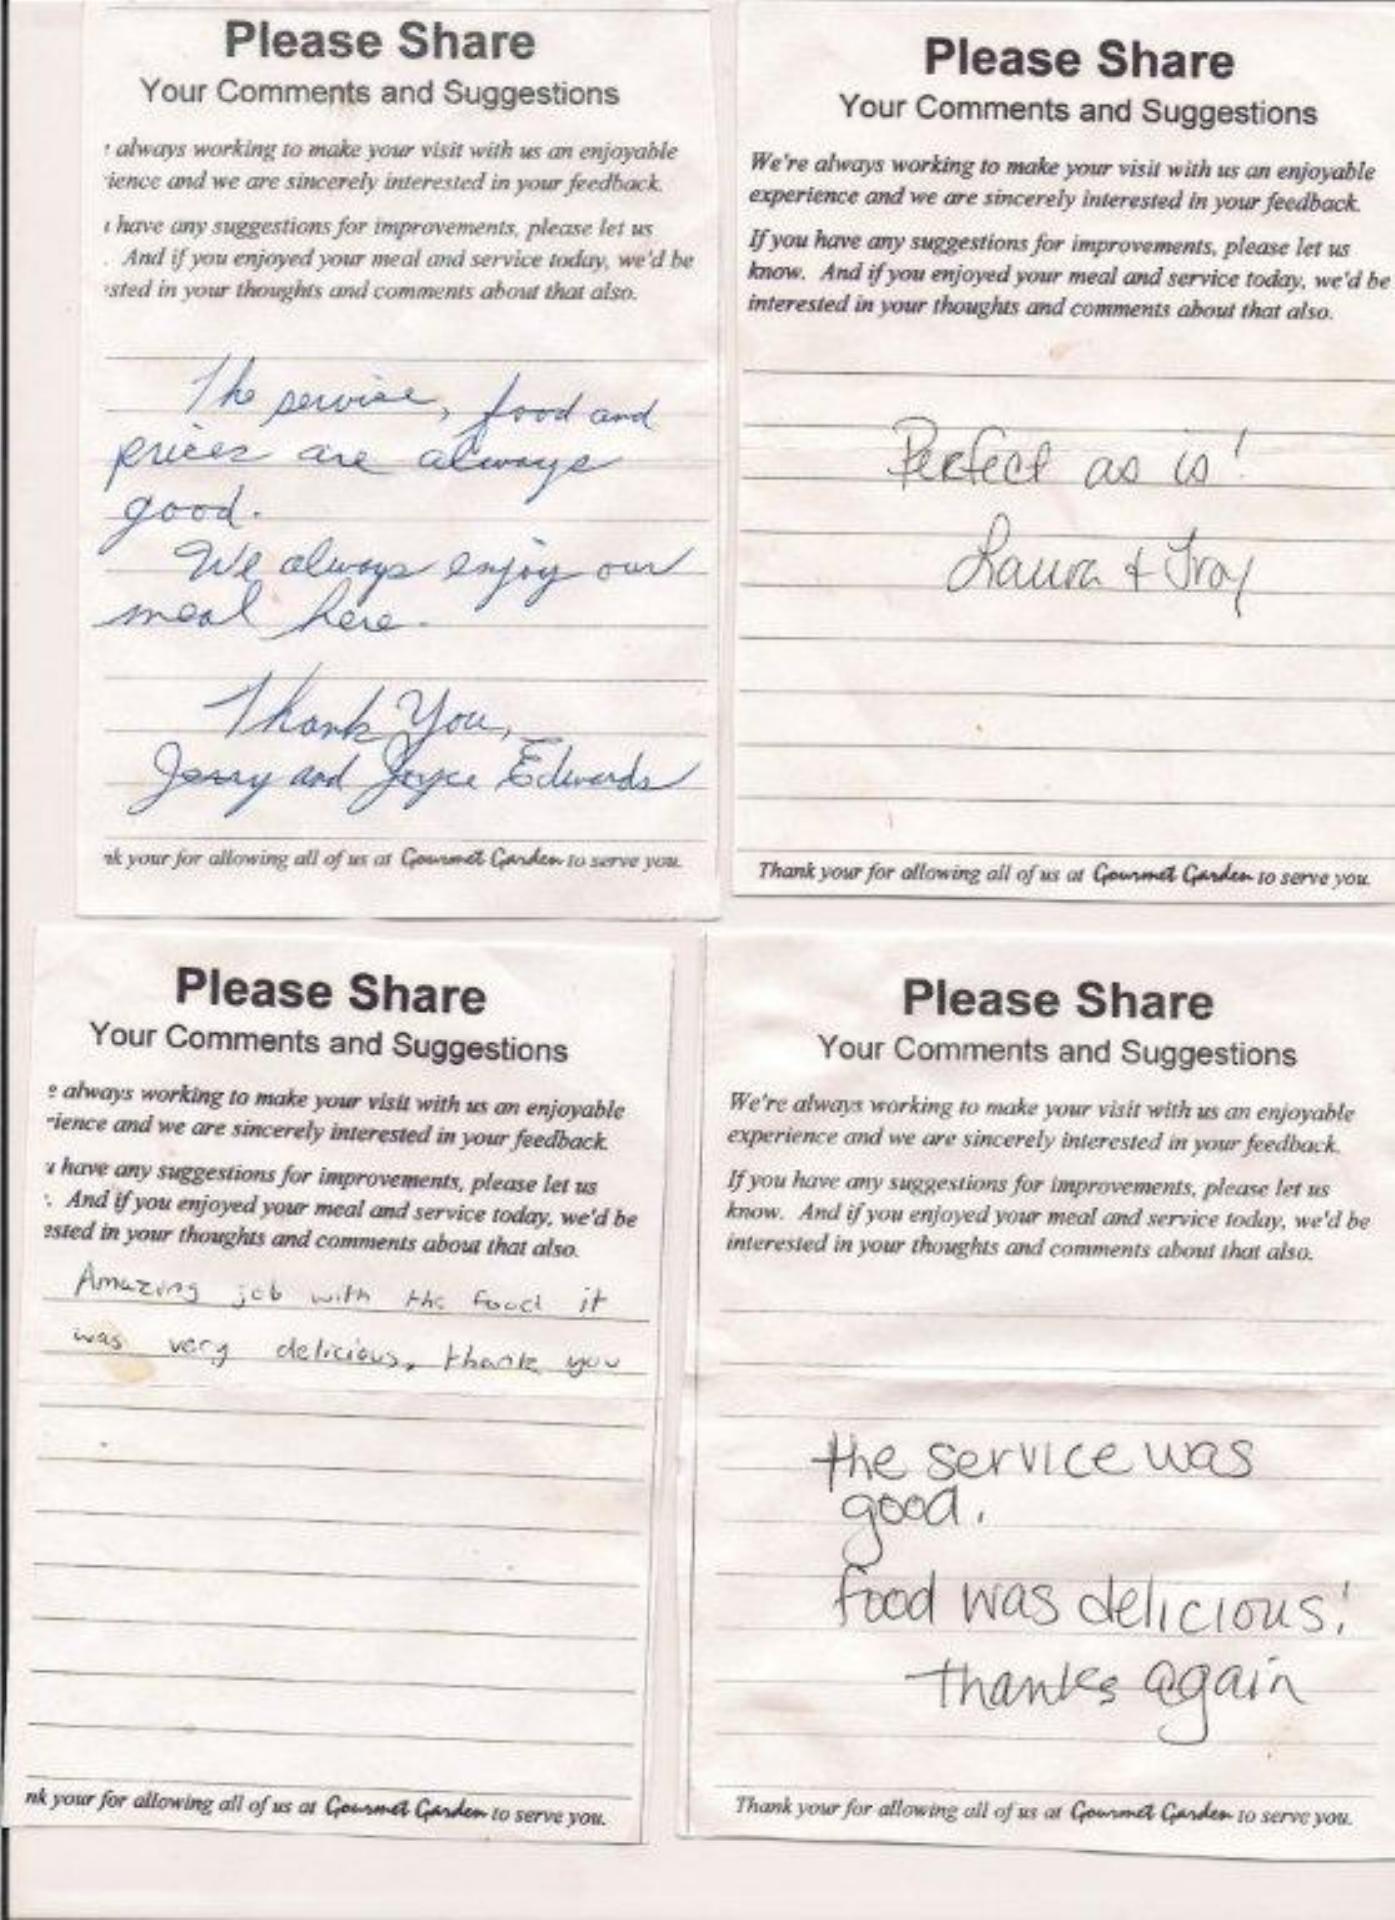 Please Share
Your Comments and Suggestions
always working to make your visit with us an enjoyable
ience and we are sincerely interested in your feedback.
have any suggestions for improvements, please let us
. And if you enjoyed your meal and service today, we'd be
sted in your thoughts and comments about that also.
The service, food and
prices are always
good.
We always enjoy our
meal here.
Thank You,
Jerry and Joyce Edwards
nk your for allowing all of us at Gourmet Garden to serve you.
Please Share
Your Comments and Suggestions
We're always working to make your visit with us an enjoyable
experience and we are sincerely interested in your feedback.
If you have any suggestions for improvements, please let us
know. And if you enjoyed your meal and service today, we'd be
interested in your thoughts and comments about that also.
Perfect as is!
Laura & Troy
Thank your for allowing all of us at Gourmet Garden to serve you.
Please Share
Your Comments and Suggestions
e always working to make your visit with us an enjoyable
rience and we are sincerely interested in your feedback.
u have any suggestions for improvements, please let us
. And if you enjoyed your meal and service today, we'd be
ested in your thoughts and comments about that also.
Amazing job with the food it
was very delicious, thank you
nk your for allowing all of us at Gourmet Garden to serve you.
Please Share
Your Comments and Suggestions
We're always working to make your visit with us an enjoyable
experience and we are sincerely interested in your feedback.
If you have any suggestions for improvements, please let us
know. And if you enjoyed your meal and service today, we'd be
interested in your thoughts and comments about that also.
the service was
good.
food was delicious!
thanks again
Thank your for allowing all of us at Gourmet Garden to serve you.